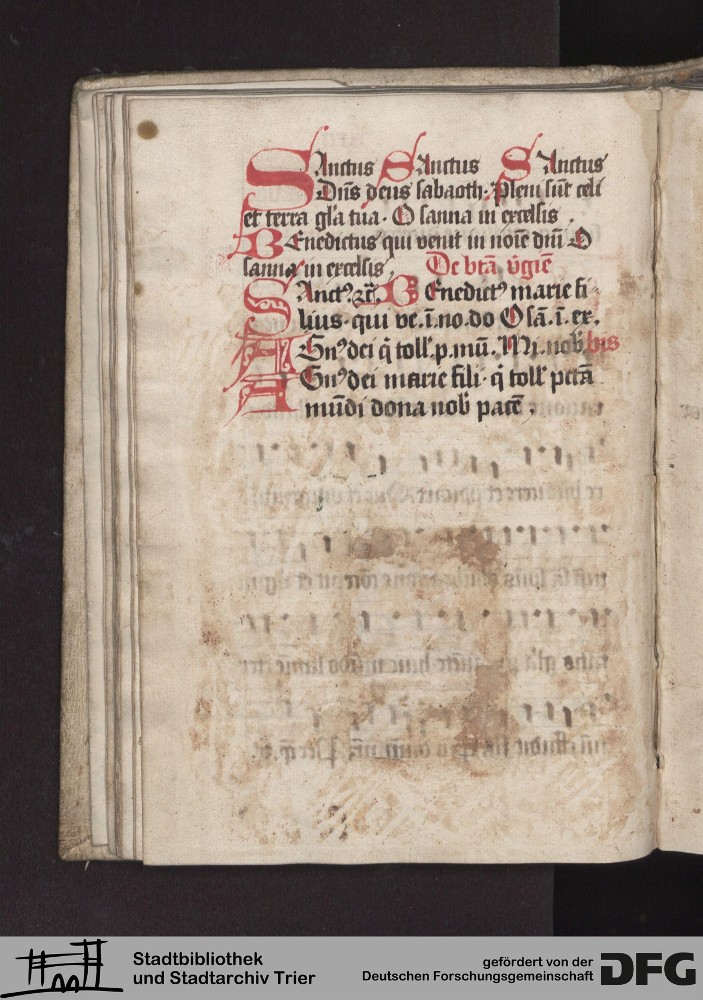 Sanctus Sanctus Sanctus
Dn̄s deus sabaoth· Pleni sūt celi
et terra gl̄a tua· O sanna in excelsis.
Benedictus qui venit in noīe dn̄i O
sanna in excelsis, De btā v̓gīe
Sanct⁹. zc̄. Benedict⁹ marie fi-
lius· qui ve. ī. no. do O sā. ī. ex.
Agn⁹ dei q̄ toll̓. p. mū. Mi. nob̓. bis
Agn⁹ dei marie fili· q̄ toll̓ pctā
mūdi dona nob̓ pacē,
Stadtbibliothek
und Stadtarchiv Trier
gefördert von der
Deutschen Forschungsgemeinschaft
DFG